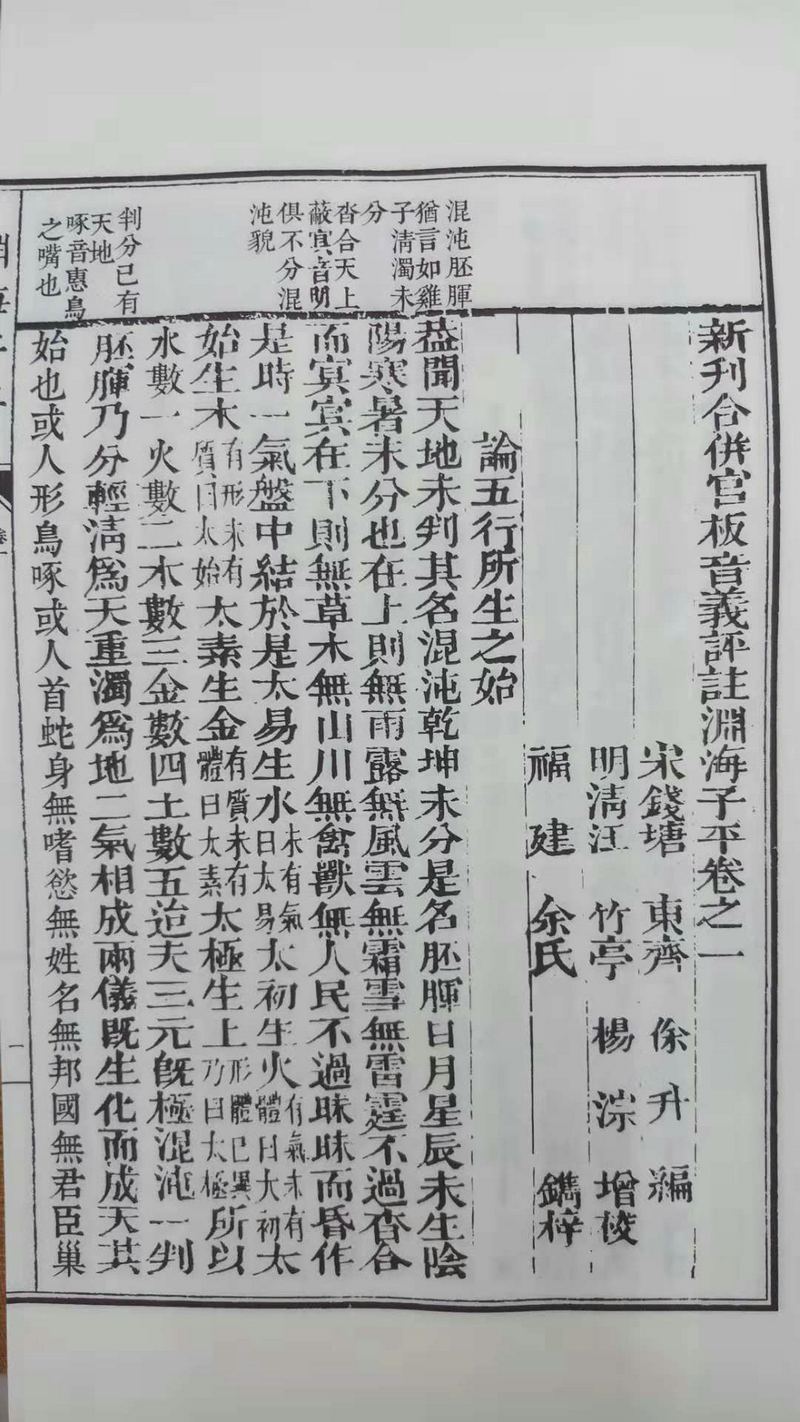 新刋合併官板音義評註淵海子平卷之一
宋錢塘 東齊 徐升 編
明清江 竹亭 楊淙 增校
福建 余氏 鐫梓
論五行所生之始
葢聞天地未判其名混沌乾坤未分是名胚腪日月星辰未生陰
陽寒暑未分也在上則無雨露無風雲無霜雪無雷霆不過杳合
而㝠㝠在下則無草木無山川無禽獸無人民不過昧昧而昏作
是時一氣盤中結於是太易生水未有氣曰太易太初生火有氣未有體曰太初太
始生木有形未有質曰太始太素生金有質未有體曰太素太極生上形體已具乃曰太極所以
水數一火數二木數三金數四土數五迨夫三元旣極混沌一判
胚腪乃分輕清爲天重濁爲地二氣相成兩儀旣生化而成天其
始也或人形鳥啄或人首蛇身無嗜慾無姓名無邦國無君臣巢
混沌胚腪
猶言如雞
子清濁未
分
杳合天上
蔽㝠音明
俱不分混
沌貌
判分已有
天地
啄音惠鳥
之嘴也